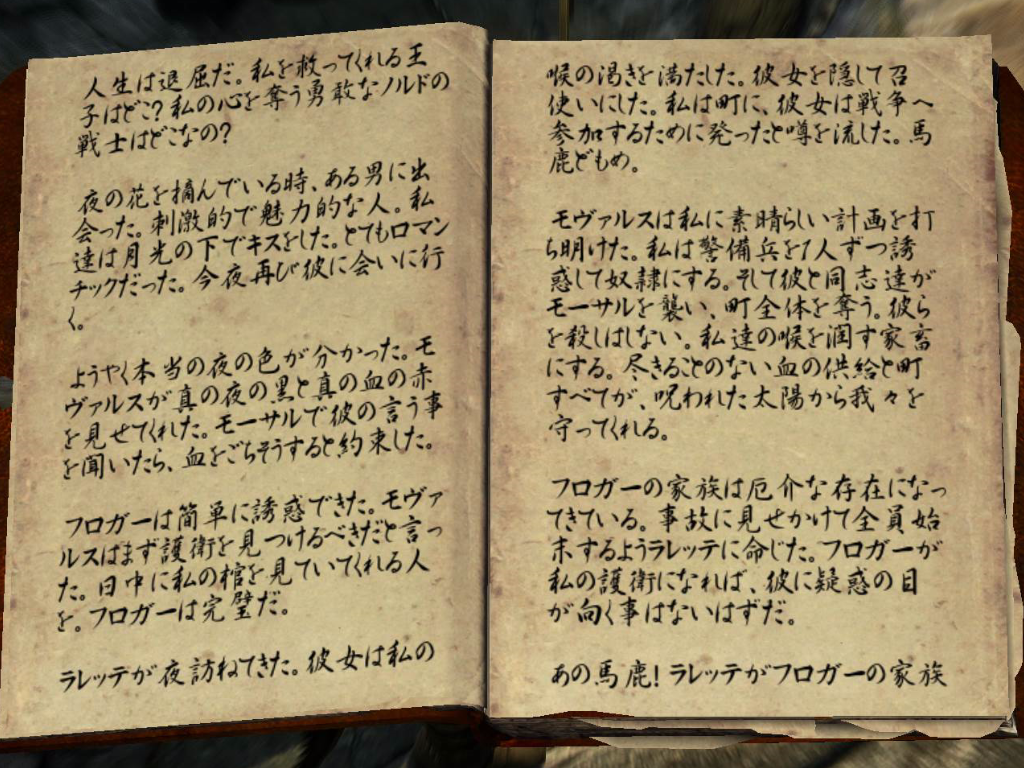 人生は退屈だ。私を救ってくれる王
子はどこ？私の心を奪う勇敢なノルドの
戦士はどこなの？
夜の花を摘んでいる時、ある男に出
会った。刺激的で魅力的な人。私
達は月光の下でキスをした。とてもロマン
チックだった。今夜再び彼に会いに行
く。
ようやく本当の夜の色が分かった。モ
ヴァルスが真の夜の黒と真の血の赤
を見せてくれた。モーサルで彼の言う事
を聞いたら、血をごちそうすると約束した。
フロガーは簡単に誘惑できた。モヴァ
ルスはまず護衛を見つけるべきだと言っ
た。日中に私の棺を見ていてくれる人
を。フロガーは完璧だ。
ラレッテが夜訪ねてきた。彼女は私の
喉の渇きを満たした。彼女を隠して召
使いにした。私は町に、彼女は戦争へ
参加するために発ったと噂を流した。馬
鹿どもめ。
モヴァルスは私に素晴らしい計画を打
ち明けた。私は警備兵を1人ずつ誘
惑して奴隷にする。そして彼と同志達が
モーサルを襲い、町全体を奪う。彼ら
を殺しはしない。私達の喉を潤す家畜
にする。尽きることのない血の供給と町
すべてが、呪われた太陽から我々を
守ってくれる。
フロガーの家族は厄介な存在になっ
てきている。事故に見せかけて全員始
末するようラレッテに命じた。フロガーが
私の護衛になれば、彼に疑惑の目
が向く事はないはずだ。
あの馬鹿！ラレッテがフロガーの家族